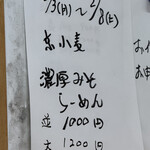 /3(月)~2/8(土)
京小麦
濃厚みそ
らーめん
並 1000円
大 1200円
お
お申